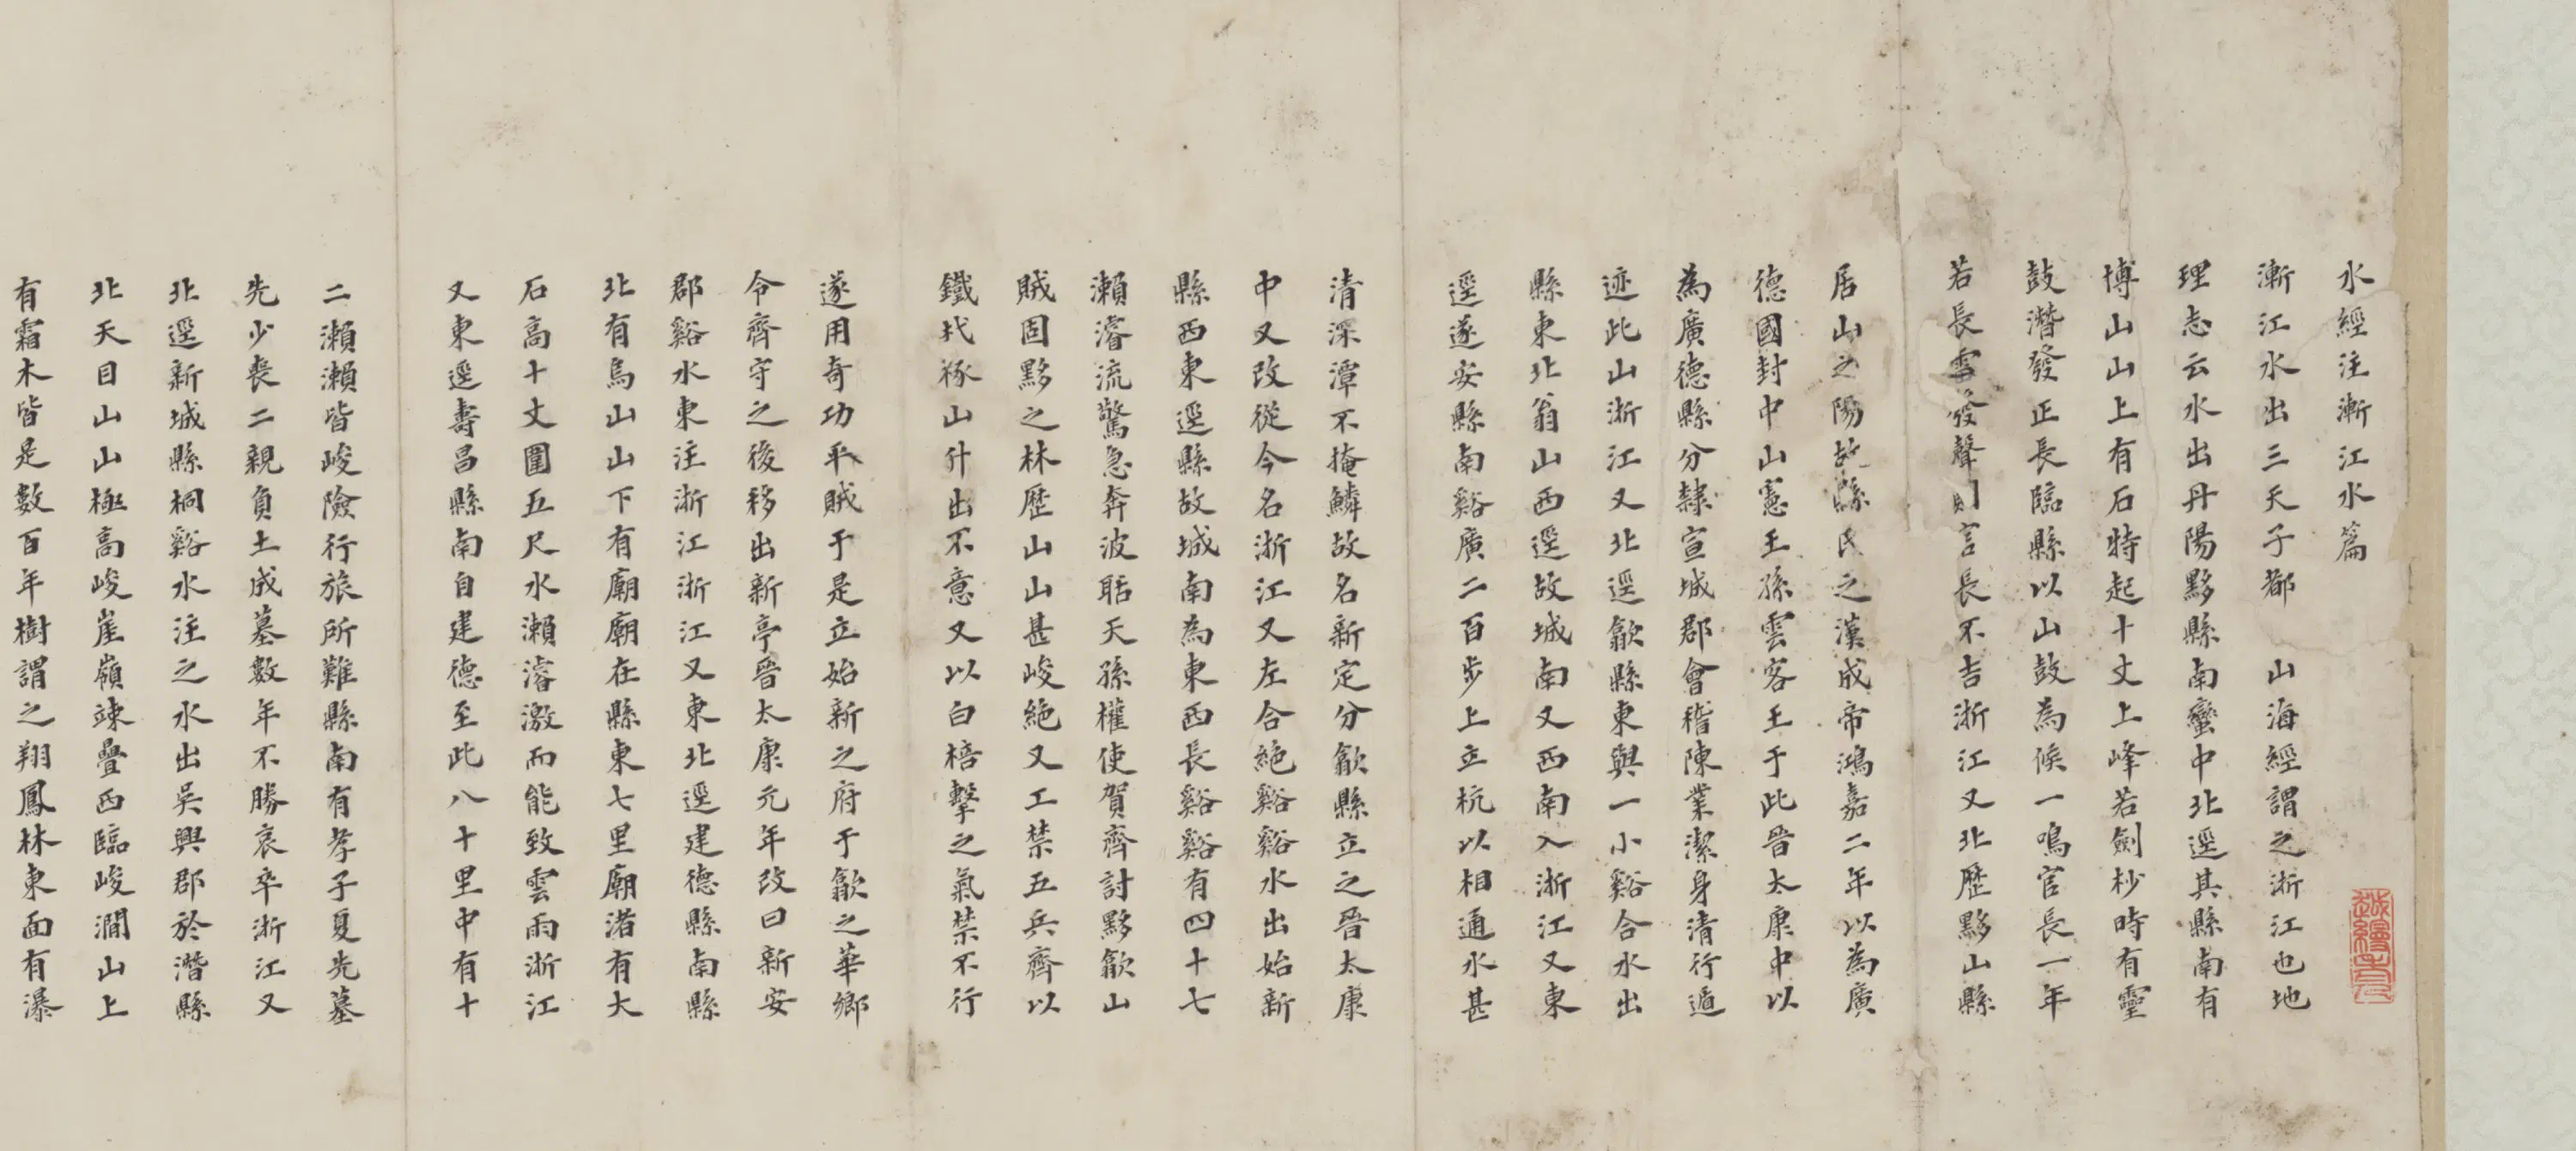 水經注漸江水篇
漸江水出三天子都　山海經謂之浙江也地
理志云水出丹陽黟縣南蠻中北逕其縣南有
博山山上有石特起十丈上峰若劍杪時有靈
鼓潛發正長臨縣以山鼓為候一鳴官長一年
若長雷發聲則言長不吉浙江又北歷黟山縣
居山之陽故縣氏之漢成帝鴻嘉二年以為廣
德國封中山憲王孫雲客王于此晉太康中以
為廣德縣分隸宣城郡會稽陳業潔身清行遁
迹此山浙江又北逕歙縣東與一小谿合水出
縣東北翁山西逕故城南又西南入浙江又東
逕遂安縣南谿廣二百步上立杭以相通水甚
清深潭不掩鱗故名新定分歙縣立之晉太康
中又改從今名浙江又左合絕谿谿水出始新
縣西東逕縣故城南為東西長谿谿有四十七
瀨濬流驚急奔波聒天孫權使賀齊討黟歙山
賊固黟之林歷山山甚峻絕又工禁五兵齊以
鐵杙椓山升出不意又以白棓擊之氣禁不行
遂用奇功平賊于是立始新之府于歙之華鄉
令齊守之後移出新亭晉太康元年改曰新安
郡谿水東注浙江浙江又東北逕建德縣南縣
北有烏山山下有廟廟在縣東七里廟渚有大
石高十丈圍五尺水瀨濬激而能致雲雨浙江
又東逕壽昌縣南自建德至此八十里中有十
二瀨瀨皆峻險行旅所難縣南有孝子夏先墓
先少喪二親負土成墓數年不勝哀卒浙江又
北逕新城縣桐谿水注之水出吳興郡於潛縣
北天目山山極高峻崖嶺竦疊西臨峻澗山上
有霜木皆是數百年樹謂之翔鳳林東面有瀑